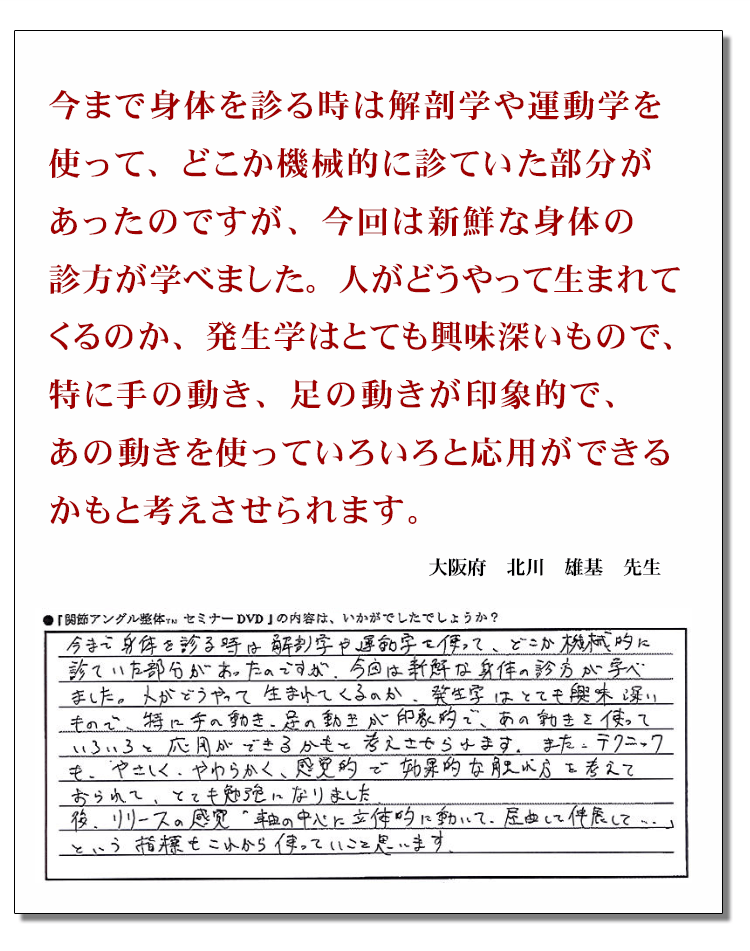 今まで身体を診る時は解剖学や運動学を
使って、どこか機械的に診ていた部分が
あったのですが、今回は新鮮な身体の
診方が学べました。人がどうやって生まれて
くるのか、発生学はとても興味深いもので、
特に手の動き、足の動きが印象的で、
あの動きを使っていろいろと応用ができる
かもと考えさせられます。
大阪府 北川 雄基 先生
●『関節アングル整体™ セミナーDVD』の内容は、いかがでしたでしょうか？
今まで身体を診る時は解剖学や運動学を使って、どこか機械的に
診ていた部分があったのですが、今回は新鮮な身体の診方が学べ
ました。人がどうやって生まれてくるのか、発生学はとても興味深い
もので、特に手の動き、足の動きが印象的で、あの動きを使って
いろいろと応用ができるかもと考えさせられます。また、テクニック
も、やさしく、やわらかく、感覚的で効果的な触れ方を考えて
おられて、とても勉強になりました。
後、リリースの感覚「軸の中心に立体的に動いて、屈曲して伸展して…」
という指標もこれから使っていこと思います。